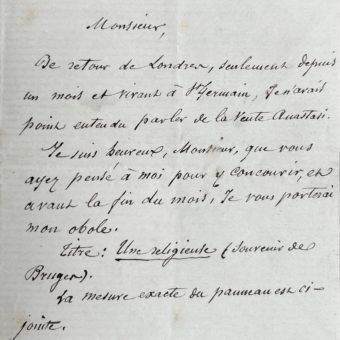 Monsieur,
De retour de Londres, seulement depuis
un mois et vivant à St Germain, Je n'avais
point entendu parler de la Vente Anastasi.
Je suis heureux, Monsieur, que vous
ayez pensé à moi pour y concourir, et
avant la fin du mois, Je vous porterai
mon obole.
Titre: Une religieuse (Souvenir de
Bruges).
La mesure exacte du panneau est ci-
jointe.